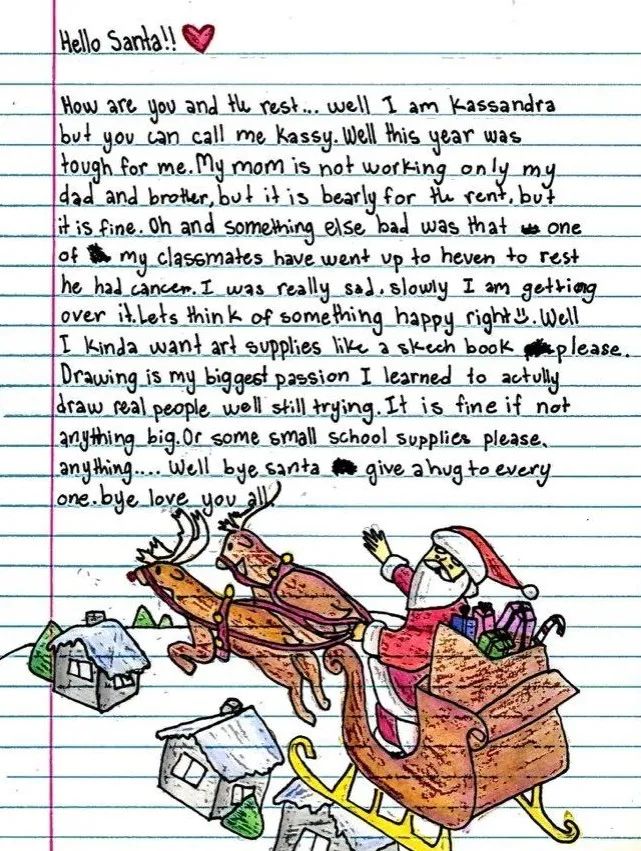 Hello Santa!!
How are you and the rest... well I am Kassandra
but you can call me Kassy. Well this year was
tough for me. My mom is not working only my
dad and brother, but it is bearly for the rent, but
it is fine. Oh and something else bad was that one
of my classmates have went up to heven to rest
he had cancer. I was really sad, slowly I am getting
over it. Lets think of something happy right. Well
I kinda want art supplies like a skech book please.
Drawing is my biggest passion I learned to actully
draw real people well still trying. It is fine if not
anything big. Or some small school supplies please,
anything.... Well bye santa give a hug to every
one. bye love you all.